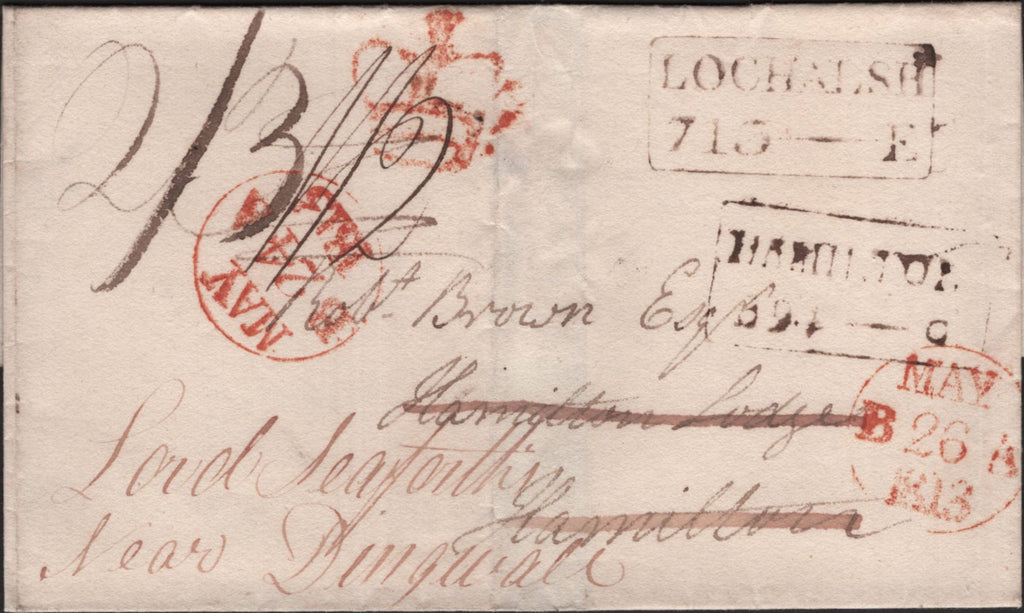 2/3
1/2
LOCHALSH
713 — E
HAMILTON
394 — C
MAY
Robt. Brown Esqr
Hamilton Lodge
Hamilton
Lord Seaforth's
Near Dingwall
MAY
B 26 A
1813